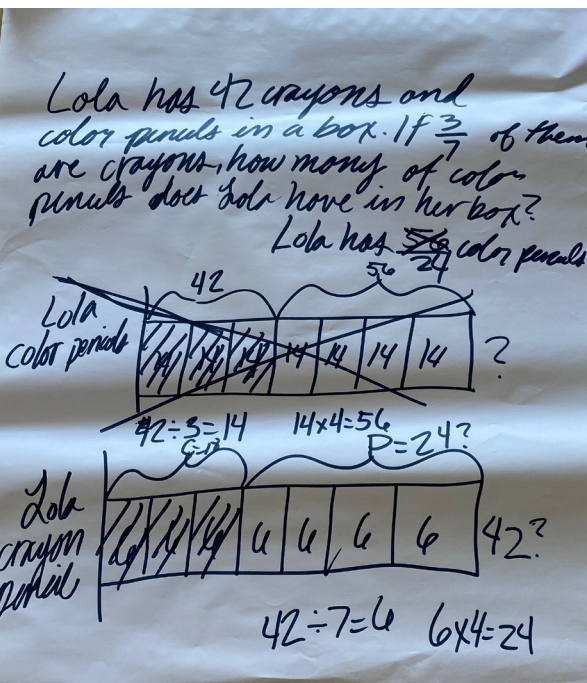 Lola has 42 crayons and
color pencils in a box. If 3/7 of them
are crayons, how many of color
pencils does Lola have in her box?
Lola has 56 color pencils
24
42 56
Lola
color pencils
14 14 14 14 14 14 14 ?
42÷3=14 14x4=56
P=24?
Lola
crayon
pencil
6 6 6 6 6 6 6 42?
42÷7=6 6x4=24